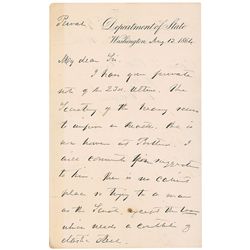 Private
Department of State
Washington, Aug. 12, 186
My dear Sir.
I have your private
note of the 23d. Ultimo. The
Secretary of the Navy seems
to enjoy a health. He is
now however at Portland. I
will communicate your suggestion
to him. There is no cabinet
place so trying to a man
as the Senate except the
which needs a constitution of
elastic steel.